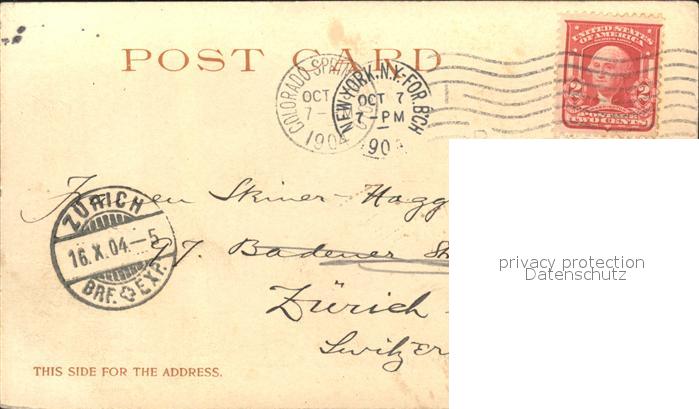 POST CARD
UNITED STATES OF AMERICA
2 2
TWO CENTS
COLORADO SPRIN
OCT
7-
190
NEW YORK, N.Y. FOR. B'CH
OCT 7
7-PM
190
Skinner-Hagg
ZÜRICH
16.X.04.-5
BRF. EXP.
97. Badener St
Zürich
Switzer
privacy protection
Datenschutz
THIS SIDE FOR THE ADDRESS.